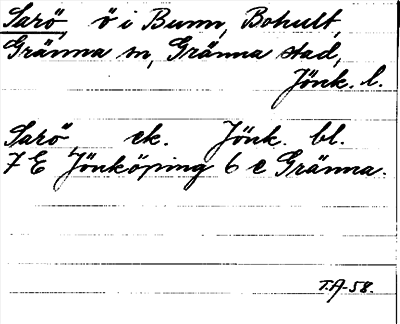 Sarö, ö i Bunn, Bohult,
Gränna sn, Gränna stad,
Jönk. l.
Sarö ek. Jönk. bl.
7 E Jönköping 6 e Gränna.
T.A-58.